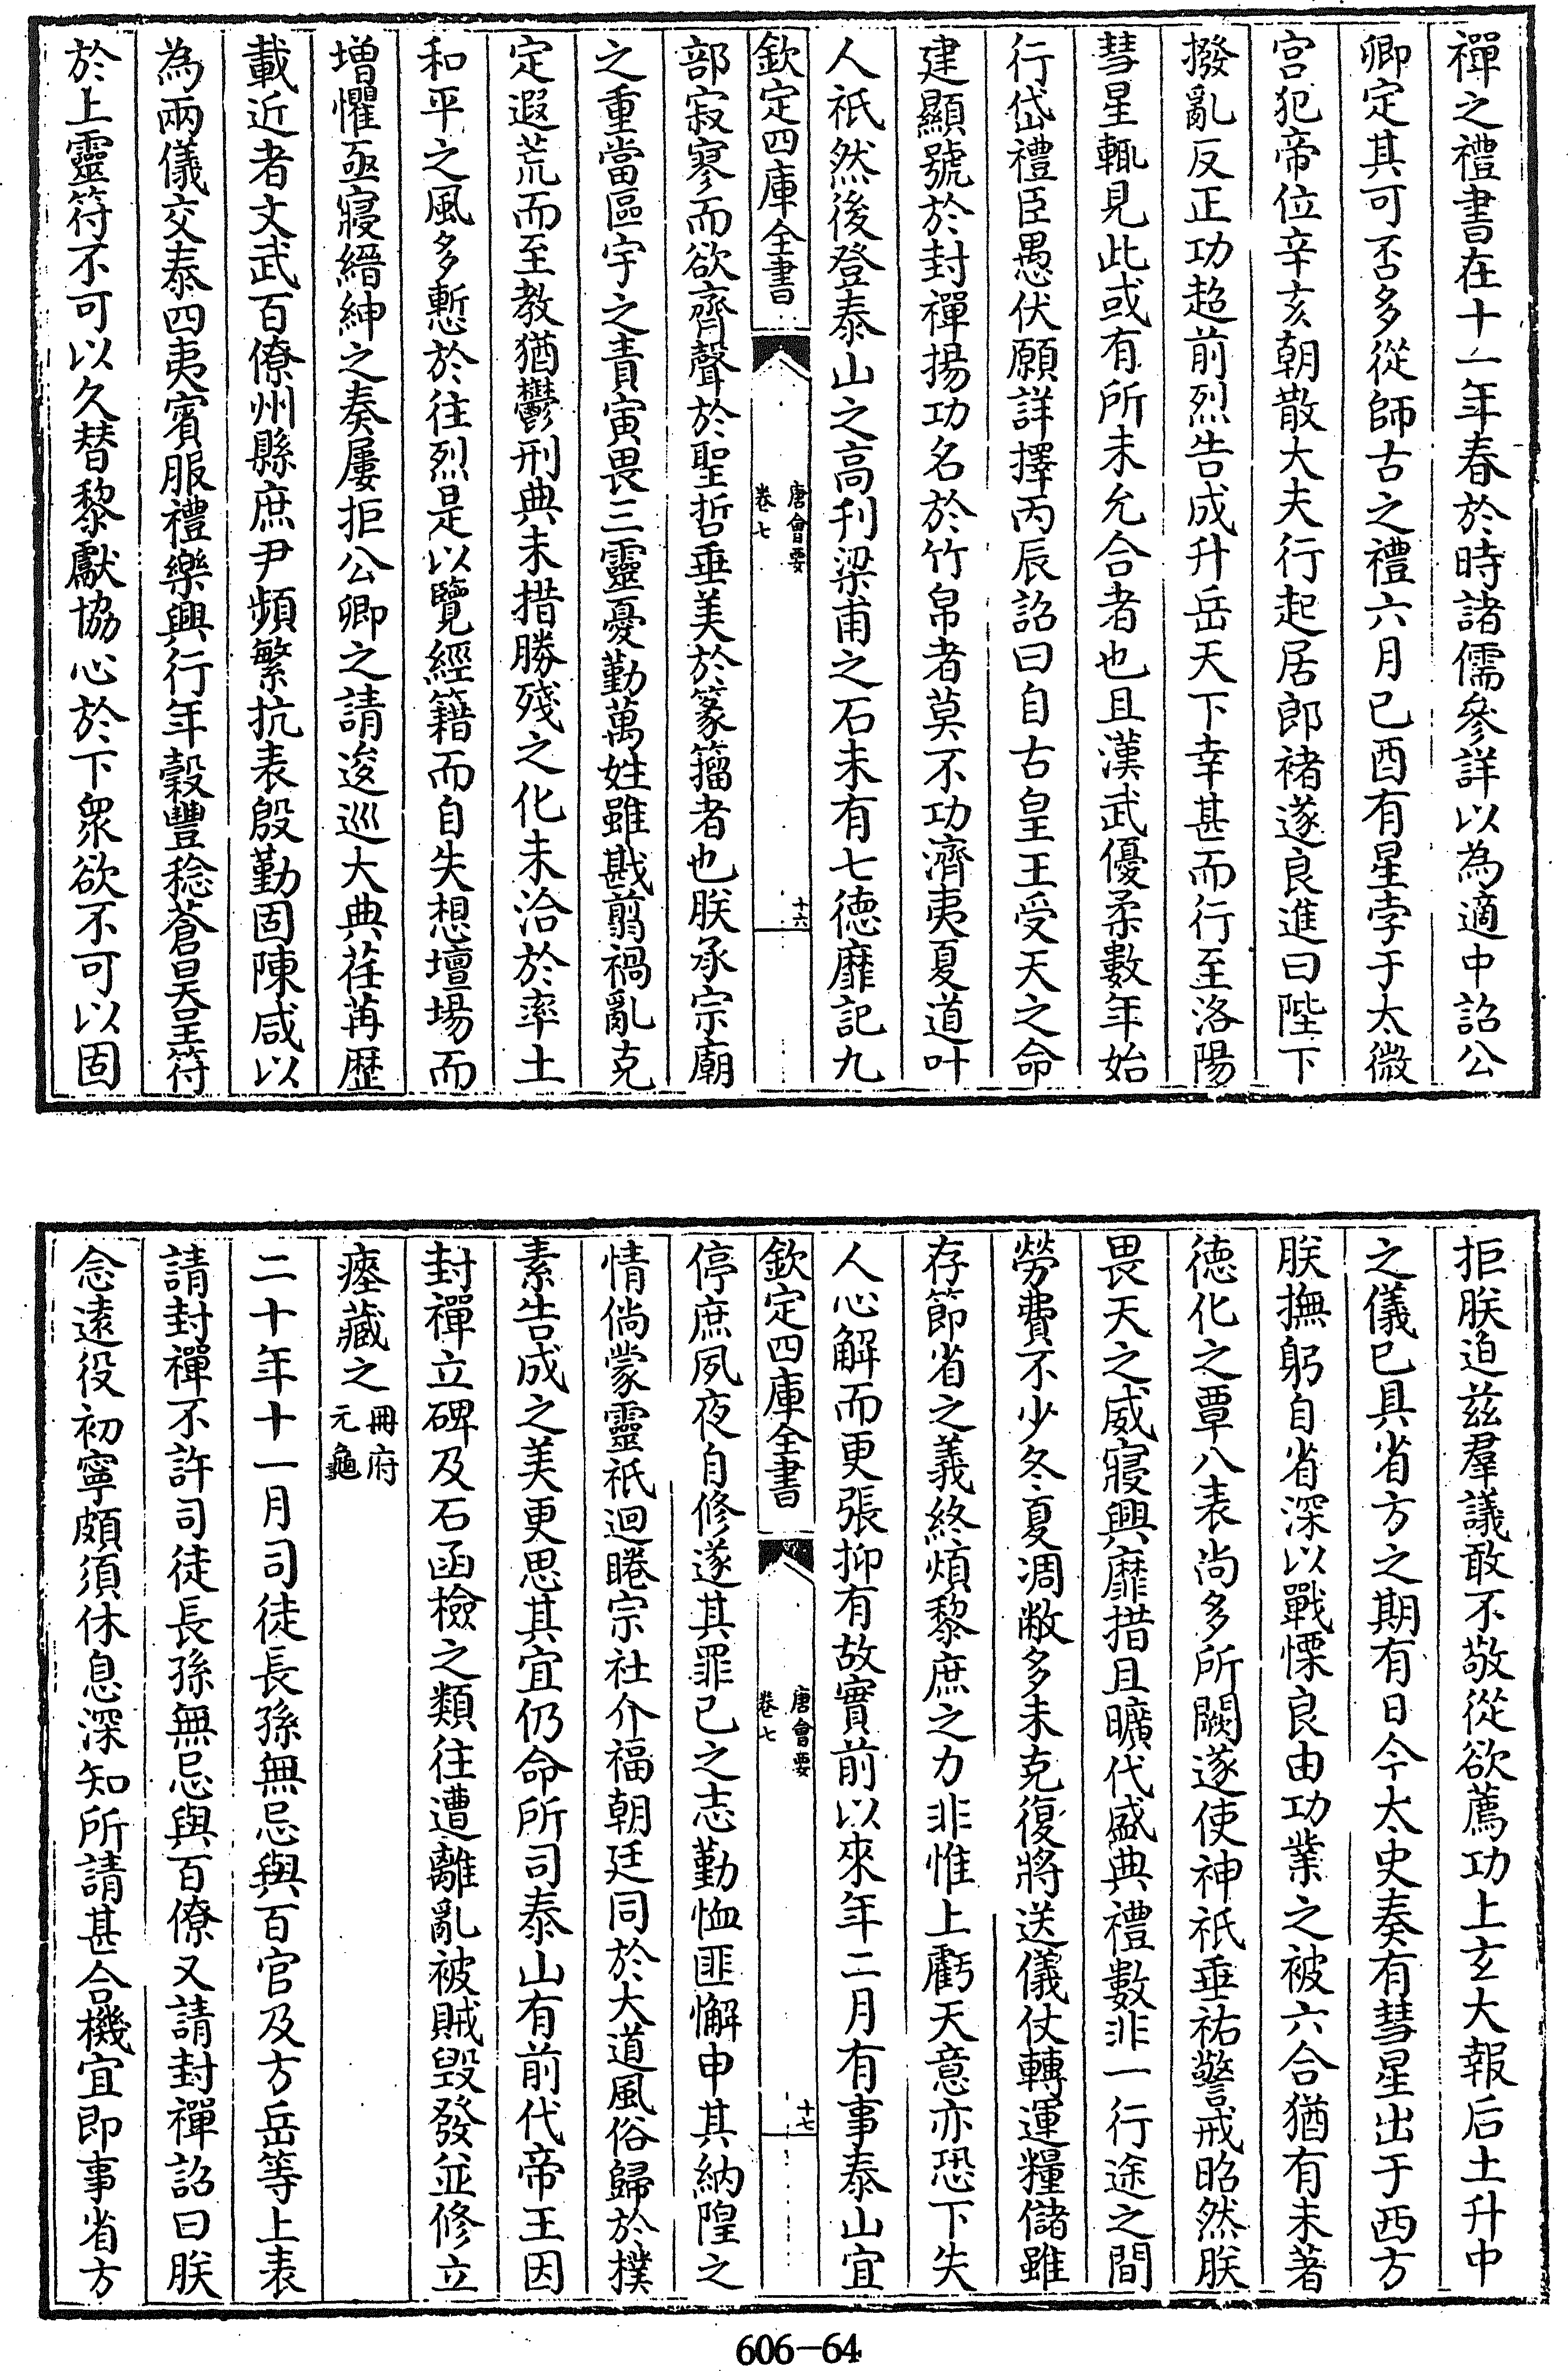 禪之禮書在十一年春於時諸儒參詳以為適中詔公
卿定其可否多從師古之禮六月己酉有星孛于太微
宫犯帝位辛亥朝散大夫行起居郎褚遂良進曰陛下
撥亂反正功超前烈告成升岳天下幸甚而行至洛陽
彗星輒見此或有所未允合者也且漢武優柔數年始
行岱禮臣愚伏願詳擇丙辰詔曰自古皇王受天之命
建顯號於封禪揚功名於竹帛者莫不功濟夷夏道叶
人祇然後登泰山之高刋梁甫之石未有七德靡記九
欽定四庫全書
唐會要
卷七
十六
部寂寥而欲齊聲於聖哲垂美於篆籀者也朕承宗廟
之重當區宇之責寅畏三靈憂勤萬姓雖戡翦禍亂克
定遐荒而至教猶鬱刑典未措勝殘之化未洽於率土
和平之風多慙於往烈是以覽經籍而自失想壇場而
增懼亟寢縉紳之奏屢拒公卿之請逡巡大典荏苒歴
載近者文武百僚州縣庶尹頻繁抗表殷勤固陳咸以
為兩儀交泰四夷賓服禮樂興行年穀豐稔蒼昊呈符
於上靈符不可以久替黎獻協心於下衆欲不可以固
拒朕迫兹羣議敢不敬從欲薦功上玄大報后土升中
之儀已具省方之期有日今太史奏有彗星出于西方
朕撫躬自省深以戰慄良由功業之被六合猶有未著
德化之覃八表尚多所闕遂使神祇垂祐警戒昭然朕
畏天之威寢興靡措且曠代盛典禮數非一行途之間
勞費不少冬夏凋敝多未克復將送儀仗轉運糧儲雖
存節省之義終煩黎庶之力非惟上虧天意亦恐下失
人心解而更張抑有故實前以來年二月有事泰山宜
欽定四庫全書
唐會要
卷七
十七
停庶夙夜自修遂其罪己之志勤恤匪懈申其納隍之
情倘蒙靈祇迴睠宗社介福朝廷同於大道風俗歸於撲
素告成之美更思其宜仍命所司泰山有前代帝王因
封禪立碑及石函檢之類往遭離亂被賊毁發並修立
瘞藏之
冊府
元龜
二十年十一月司徒長孫無忌與百官及方岳等上表
請封禪不許司徒長孫無忌與百僚又請封禪詔曰朕
念遠役初寧頗須休息深知所請甚合機宜即事省方
606-64